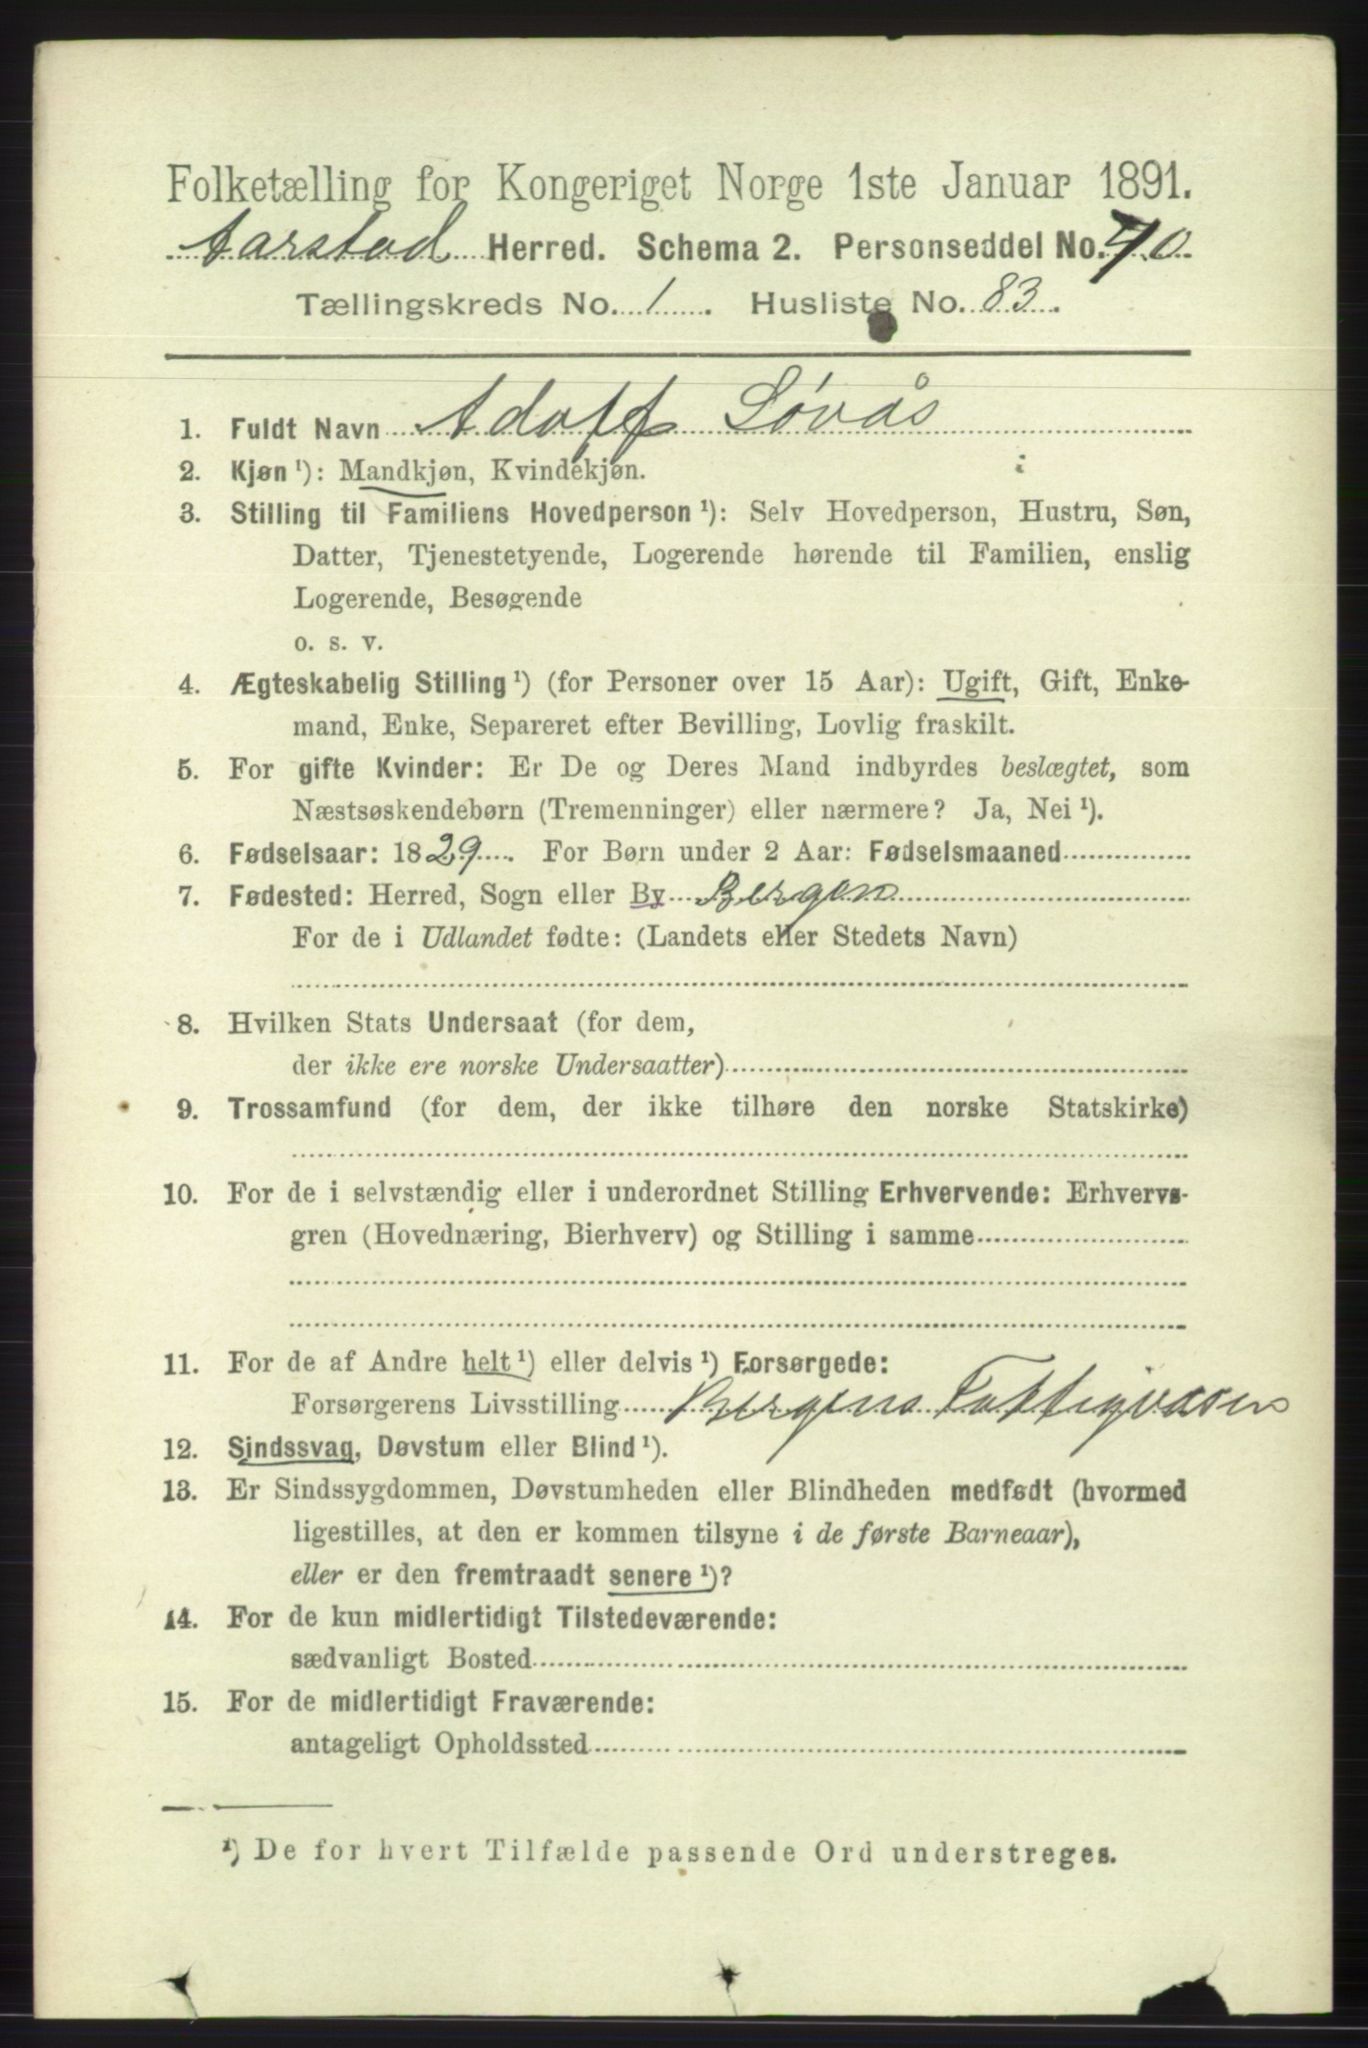 Folketælling for Kongeriget Norge 1ste Januar 1891.
Aarstad Herred. Schema 2. Personseddel No. 40
Tællingskreds No. 1. Husliste No. 83.
1. Fuldt Navn Adolf Løvås
2. Kjøn ¹): Mandkjøn, Kvindekjøn.
3. Stilling til Familiens Hovedperson ¹): Selv Hovedperson, Hustru, Søn,
Datter, Tjenestetyende, Logerende hørende til Familien, enslig
Logerende, Besøgende
o. s. v.
4. Ægteskabelig Stilling ¹) (for Personer over 15 Aar): Ugift, Gift, Enke-
mand, Enke, Separeret efter Bevilling, Lovlig fraskilt.
5. For gifte Kvinder: Er De og Deres Mand indbyrdes beslægtet, som
Næstsøskendebørn (Tremenninger) eller nærmere? Ja, Nei ¹).
6. Fødselsaar: 1829. For Børn under 2 Aar: Fødselsmaaned
7. Fødested: Herred, Sogn eller By Bergen
For de i Udlandet fødte: (Landets eller Stedets Navn)
8. Hvilken Stats Undersaat (for dem,
der ikke ere norske Undersaatter)
9. Trossamfund (for dem, der ikke tilhøre den norske Statskirke)
10. For de i selvstændig eller i underordnet Stilling Erhvervende: Erhvervs-
gren (Hovednæring, Bierhverv) og Stilling i samme
11. For de af Andre helt ¹) eller delvis ¹) Forsørgede:
Forsørgerens Livsstilling Bergens Fattigvæsen
12. Sindssvag, Døvstum eller Blind ¹).
13. Er Sindssygdommen, Døvstumheden eller Blindheden medfødt (hvormed
ligestilles, at den er kommen tilsyne i de første Barneaar),
eller er den fremtraadt senere ¹)?
14. For de kun midlertidigt Tilstedeværende:
sædvanligt Bosted
15. For de midlertidigt Fraværende:
antageligt Opholdssted
¹) De for hvert Tilfælde passende Ord understreges.